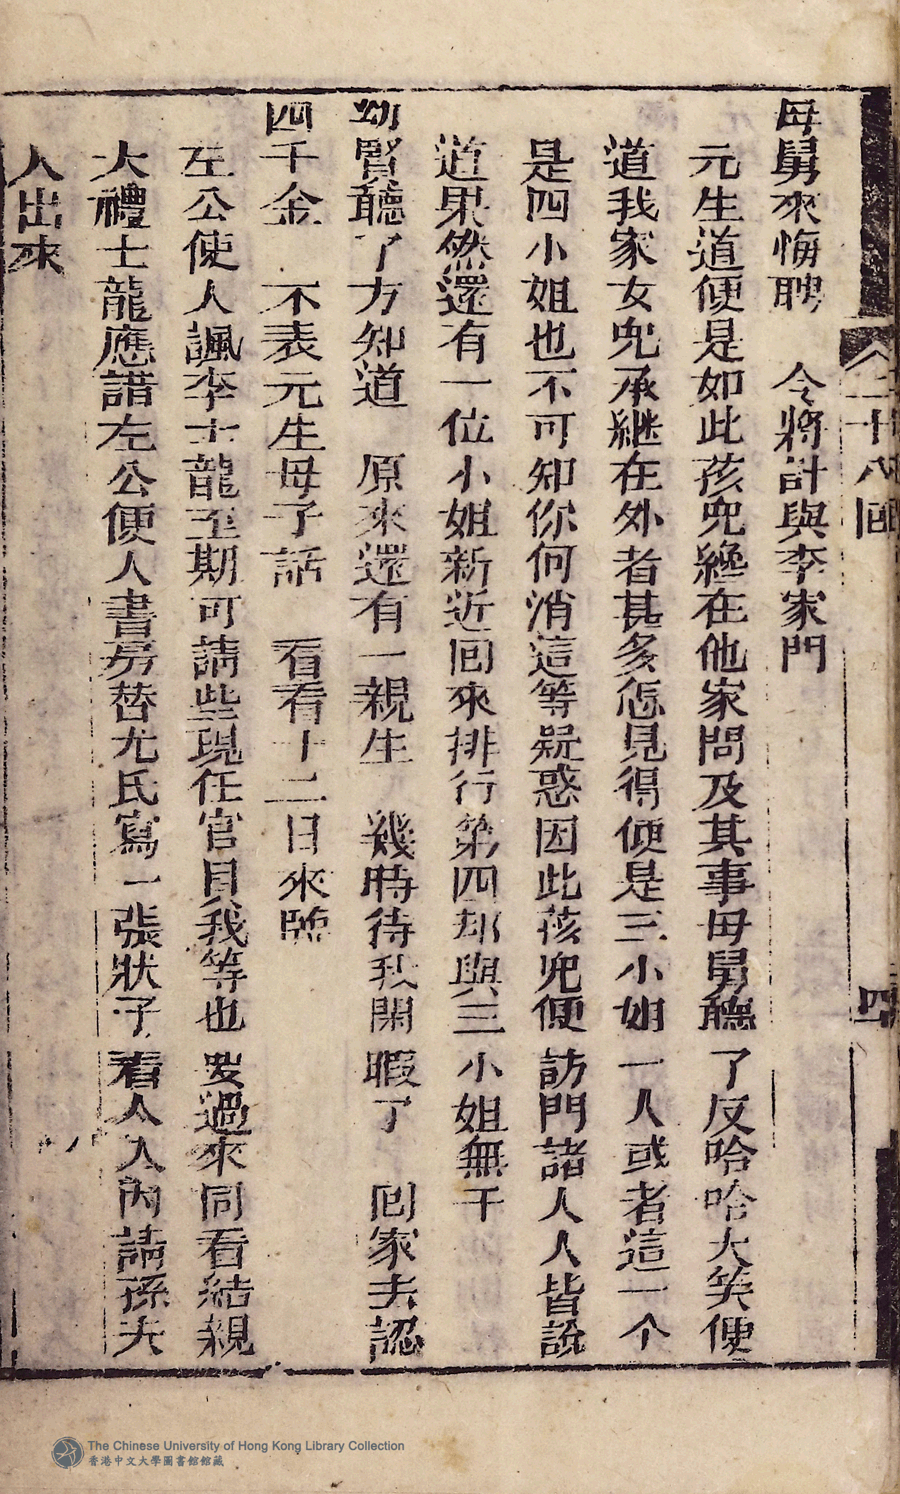 二十八回
四
母舅來悔聘　令將計與李家門
元生道便是如此孩兒纔在他家問及其事母舅聽了反哈哈大笑便
道我家女兒承継在外者甚多怎見得便是三小姐一人或者這一个
是四小姐也不可知你何消這等疑惑因此孩兒便訪門諸人人皆說
道果然還有一位小姐新近回來排行第四却與三小姐無干
幼賢聽了方知道　原來還有一親生　幾時待我閑暇了　回家去認
四千金　不表元生母子話　看看十二日來臨
左公使人諷李士龍至期可請些現任官員我等也要過來同看結親
大禮士龍應諾左公便人書房替尤氏寫一張狀子着人入內請孫夫
人出來
The Chinese University of Hong Kong Library Collection
香港中文大學圖書館館藏